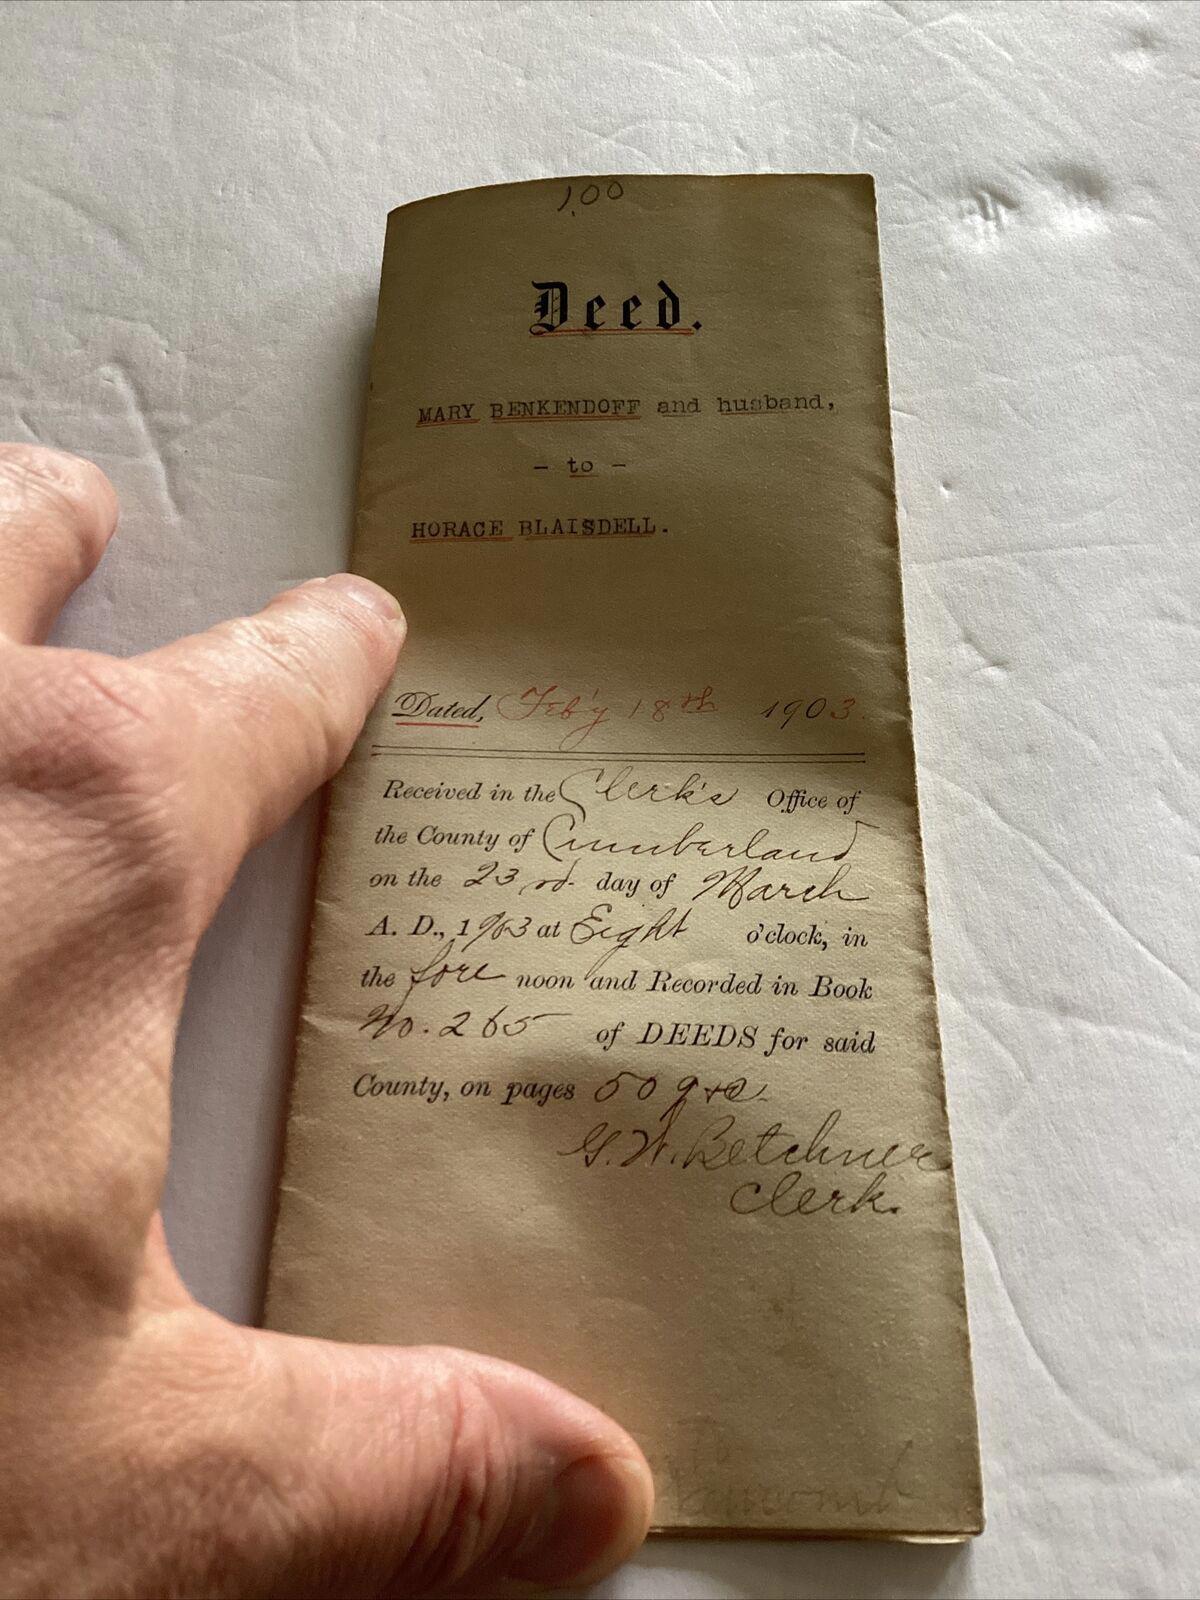 1.00
Deed.
MARY BENKENDOFF and husband,
- to -
HORACE BLAISDELL.
Dated, Feb'y 18th 1903.
Received in the Clerk's Office of
the County of Cumberland
on the 23rd. day of March
A. D., 1903 at Eight o'clock, in
the fore noon and Recorded in Book
No. 265 of DEEDS for said
County, on pages 509 +c.
G. W. Betchner
Clerk.